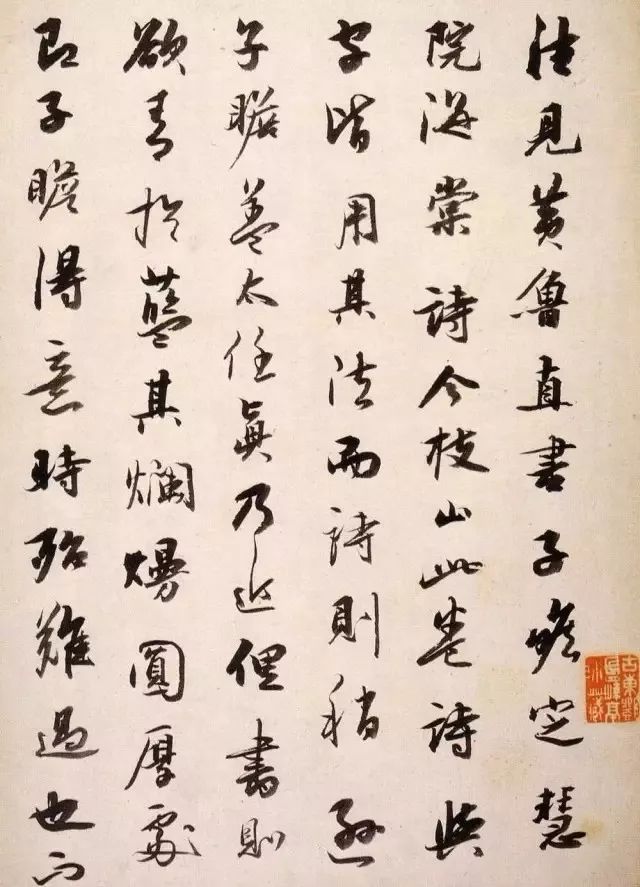 往見黃魯直書子瞻定慧
院海棠詩今枝山此卷詩與
字皆用其法而詩則稍遜
子瞻蓋太任真乃近俚書則
欲青於藍其爛熳圓厚處
即子瞻得意時殆難過也